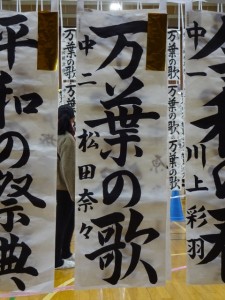 万葉の歌
中二 松田奈々
平和の祭典
中一 川上彩羽
万葉の歌
万葉の歌
万葉の歌
万葉の歌